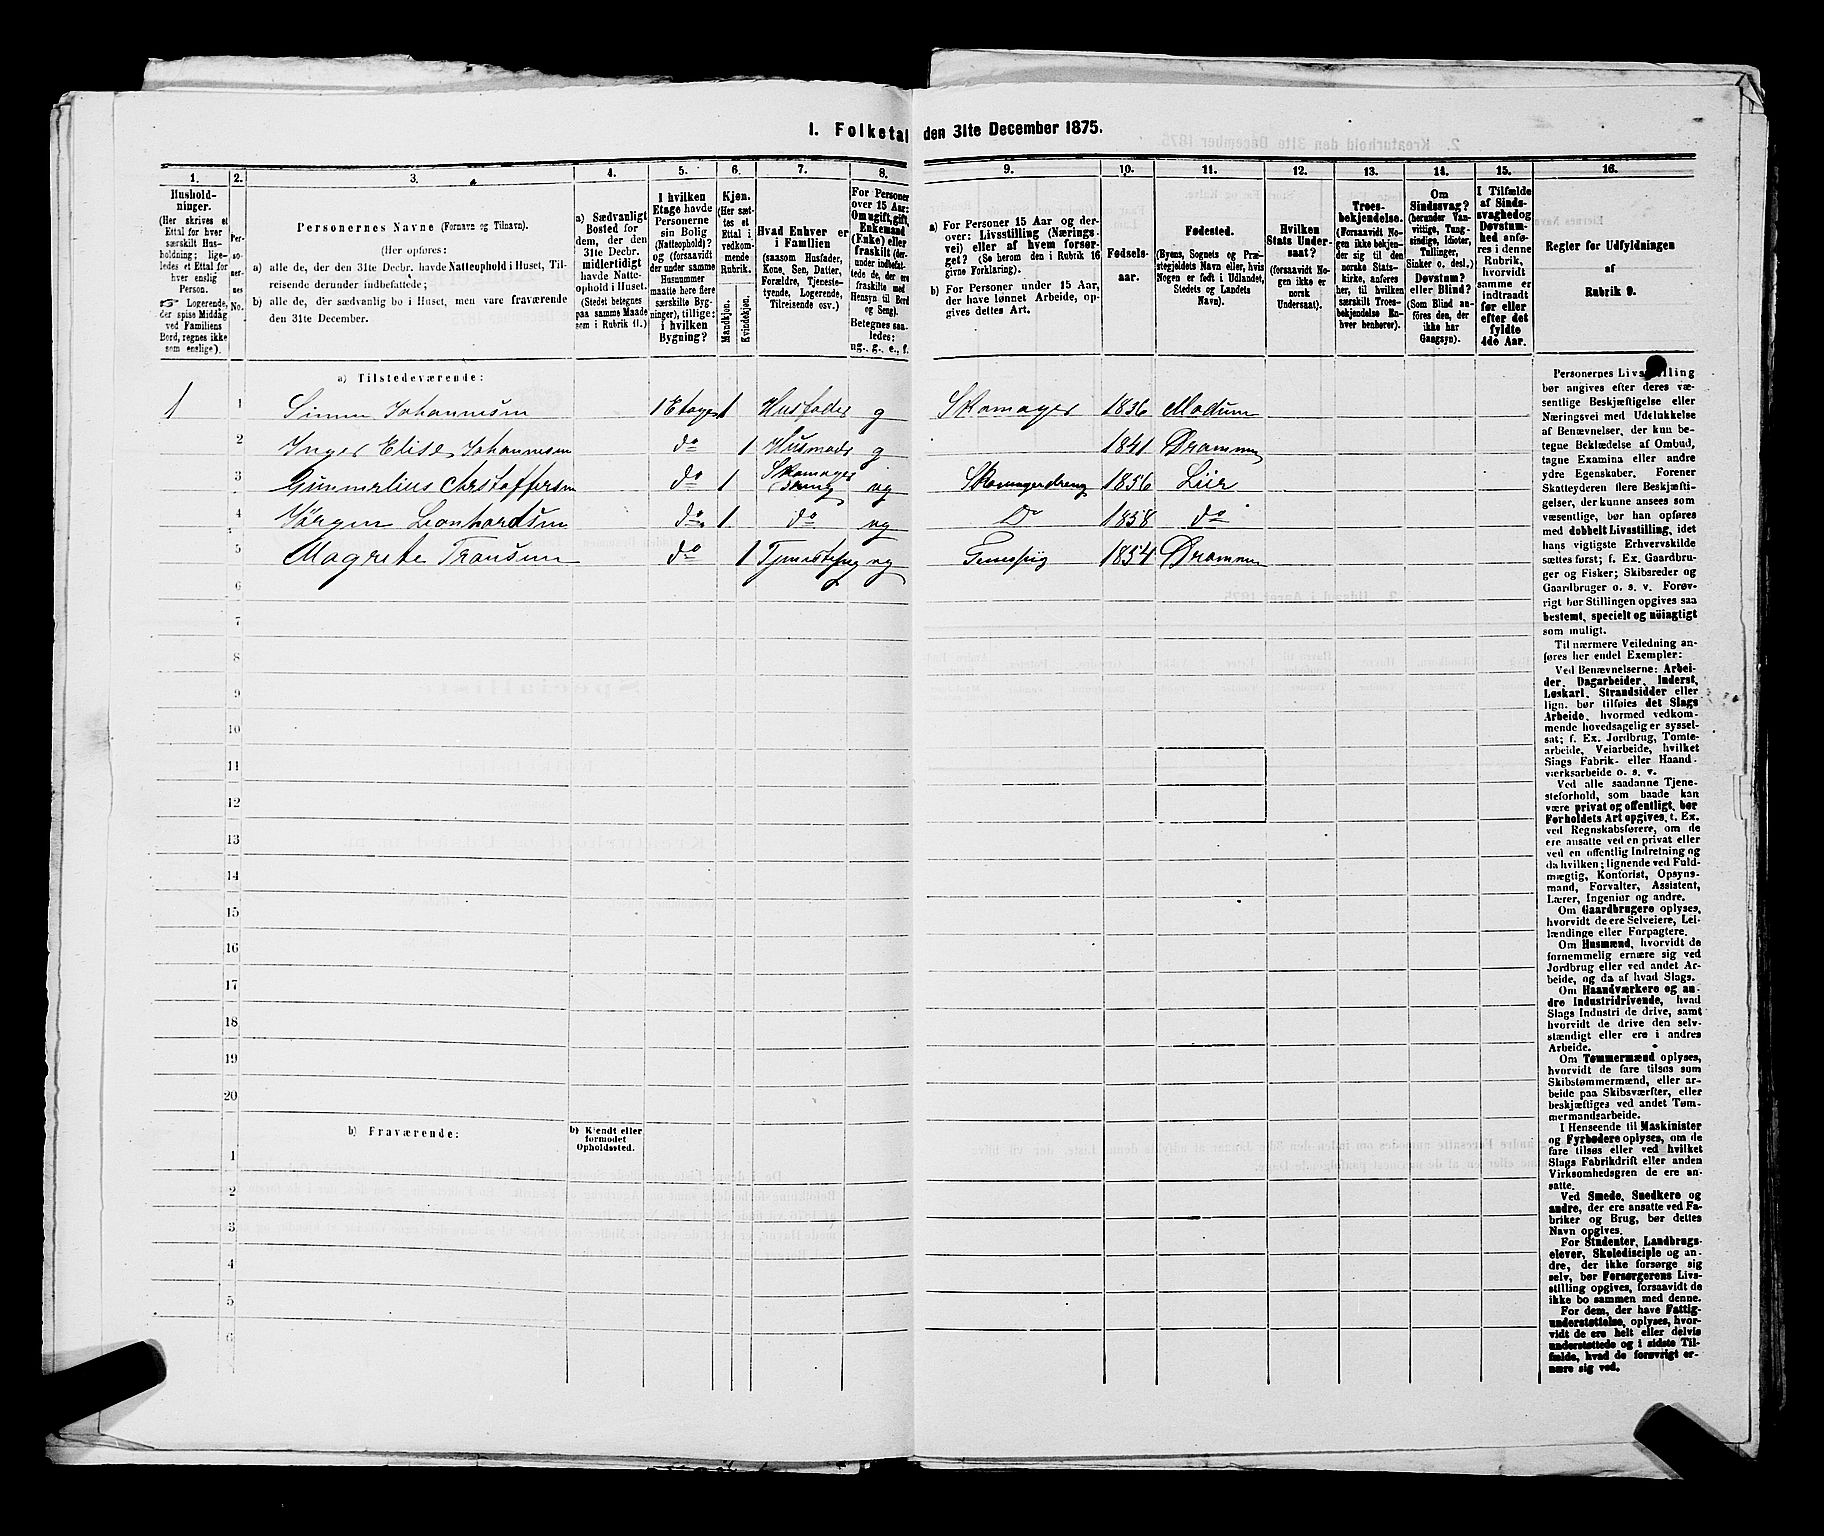 1. Folketal den 31te December 1875.
1.
Hushold-
ninger.
(Her skrives et
Ettal for hver
særskilt Hus-
holdning; lige-
ledes et Ettal for
hver enslig
Person.
☞ Logerende,
der spise Middag
ved Familiens
Bord, regnes ikke
som enslige).
2.
Per-
so-
ner-
nes
No.
3.
Personernes Navne (Fornavn og Tilnavn).
(Her opføres:
a) alle de, der den 31te Decbr. havde Natteophold i Huset, Til-
reisende derunder indbefattede;
b) alle de, der sædvanlig bo i Huset, men vare fraværende
den 31te December.
4.
a) Sædvanligt
Bosted for
dem, der den
31te Decbr.
midlertidigt
havde Natte-
ophold i Huset.
(Stedet betegnes
paa samme Maade
som i Rubrik 11.)
5.
I hvilken
Etage havde
Personerne
sin Bolig
(Natteophold)?
og (forsaavidt
der under samme
Husnummer
maatte høre flere
særskilte Byg-
ninger), tillige:
i hvilken
Bygning?
6.
Kjøn.
(Her sæt-
tes et
Ettal i
vedkom-
mende
Rubrik.
Mandkjøn.
Kvindekjøn.
7.
Hvad Enhver er
i Familien
(saasom Husfader,
Kone, Søn, Datter,
Forældre, Tjeneste-
tyende, Logerende,
Tilreisende osv.)
8.
For Personer
over 15 Aar:
Om ugift, gift,
Enkemand
(Enke) eller
fraskilt (der-
under indbefat-
tede de, der ere
fraskilte med
Hensyn til Bord
og Seng).
Betegnes saa-
ledes:
ug., g., e., f.
9.
a) For Personer 15 Aar og der-
over: Livsstilling (Nærings-
vei) eller af hvem forsør-
get? (Se herom den i Rubrik 16
givne Forklaring).
b) For Personer under 15 Aar,
der have lønnet Arbeide, op-
gives dettes Art.
10.
Fødsels-
aar.
11.
Fødested.
(Byens, Sognets og Præ-
stegjeldets Navn eller, hvis
Nogen er født i Udlandet,
Stedets og Landets
Navn).
12.
Hvilken
Stats Under-
saat?
(forsaavidt No-
gen ikke er
norsk
Undersaat).
13.
Troes-
bekjendelse.
(Forsaavidt No-
gen ikke bekjen-
der sig til den
norske Stats-
kirke, anføres
her, til hvilken
særskilt Troes-
bekjendelse En-
hver henhører).
14.
Om
Sindssvag?
(herunder Van-
vittige, Tung-
sindige, Idioter,
Tullinger,
Sinker o. desl.)
Døvstum?
eller Blind?
(Som Blind an-
føres den, der
ikke har
Gangsyn).
15.
I Tilfælde
af Sinds-
svaghed og
Døvstum-
hed anfø-
res i denne
Rubrik,
hvorvidt
samme er
indtraadt
før eller
efter det
fyldte
4de Aar.
16.
Regler for Udfyldningen
af
Rubrik 9.
a) Tilstedeværende:
1 1 Simen Johannesen 1 Etage 1 Husfader g Skomager 1836 Modum
2 Inger Elise Johannesen do 1 Husmoder g 1841 Drammen
3 Christoffersen do 1 Skomager ug Skomagerdreng 1856 Liir
4 Jörgen Leonhardsen do 1 do ug Do 1858 do
5 Magrete Transen do 1 ug 1854 Drammen
6
7
8
9
10
11
12
13
14
15
16
17
18
19
20
b) Fraværende:
b) Kjendt eller
formodet
Opholdssted.
1
2
3
4
5
6
Personernes Livsstilling
bør angives efter deres væ-
sentlige Beskjæftigelse eller
Næringsvei med Udelukkelse
af Benævnelser, der kun be-
tegne Beklædelse af Ombud,
tagne Examina eller andre
ydre Egenskaber. Forener
Skatteyderen flere Beskjæfti-
gelser, der kunne ansees som
væsentlige, bør han opføres
med dobbelt Livsstilling, idet
hans vigtigste Erhvervskilde
sættes først; f. Ex. Gaardbru-
ger og Fisker; Skibsreder og
Gaardbruger o. s. v. Forøv-
rigt bør Stillingen opgives saa
bestemt, specielt og nöiagtigt
som muligt.
Til nærmere Veiledning an-
føres her endel Exempler:
Ved Benævnelserne: Arbei-
der, Dagarbeider, Inderst,
Løskarl, Strandsidder eller
lign. bør tilføies det Slags
Arbeide, hvormed vedkom-
mende hovedsagelig er syssel-
sat; f. Ex. Jordbrug, Tomte-
arbeide, Veiarbeide, hvilket
Slags Fabrik- eller Haand-
værksarbeide o. s. v.
Ved alle saadanne Tjene-
steforhold, som baade kan
være privat og offentligt, bør
Forholdets Art opgives, t. Ex.
ved Regnskabsførere, om de
ere ansatte ved en privat eller
ved en offentlig Indretning og
da hvilken; lignende ved Fuld-
mægtig, Kontorist, Opsyns-
mand, Forvalter, Assistent,
Lærer, Ingeniør og andre.
Om Gaardbrugere oplyses,
hvorvidt de ere Selveiere, Lei-
lændinge eller Forpagtere.
Om Husmænd, hvorvidt de
fornemmelig ernære sig ved
Jordbrug eller ved andet Ar-
beide, og da af hvad Slags.
Om Haandværkere og an-
dre Industridrivende, hvad
Slags Industri de drive, samt
hvorvidt de drive den selv-
stændigt eller ere i andres
Arbeide.
Om Tømmermænd oplyses,
hvorvidt de fare tilsøs som
Skibstømmermænd, eller ar-
beide paa Skibsværfter, eller
beskjæftiges ved andet Tøm-
mermandsarbeide.
I Henseende til Maskinister
og Fyrbødere oplyses, om de
fare tilsøs eller ved hvilket
Slags Fabrikdrift eller anden
Virksomhedsgren de ere an-
satte.
Ved Smede, Snedkere og
andre, der ere ansatte ved Fa-
briker og Brug, bør dettes
Navn opgives.
For Studenter, Landbrugs-
elever, Skoledisciple og an-
dre, der ikke forsørge sig
selv, bør Forsørgerens Livs-
stilling opgives, forsaavidt de
ikke bo sammen med denne.
For dem, der have Fattig-
understøttelse, oplyses, hvor-
vidt de ere helt eller delvis
understøttede og i sidste Til-
fælde, hvad de forøvrigt er-
nære sig ved.